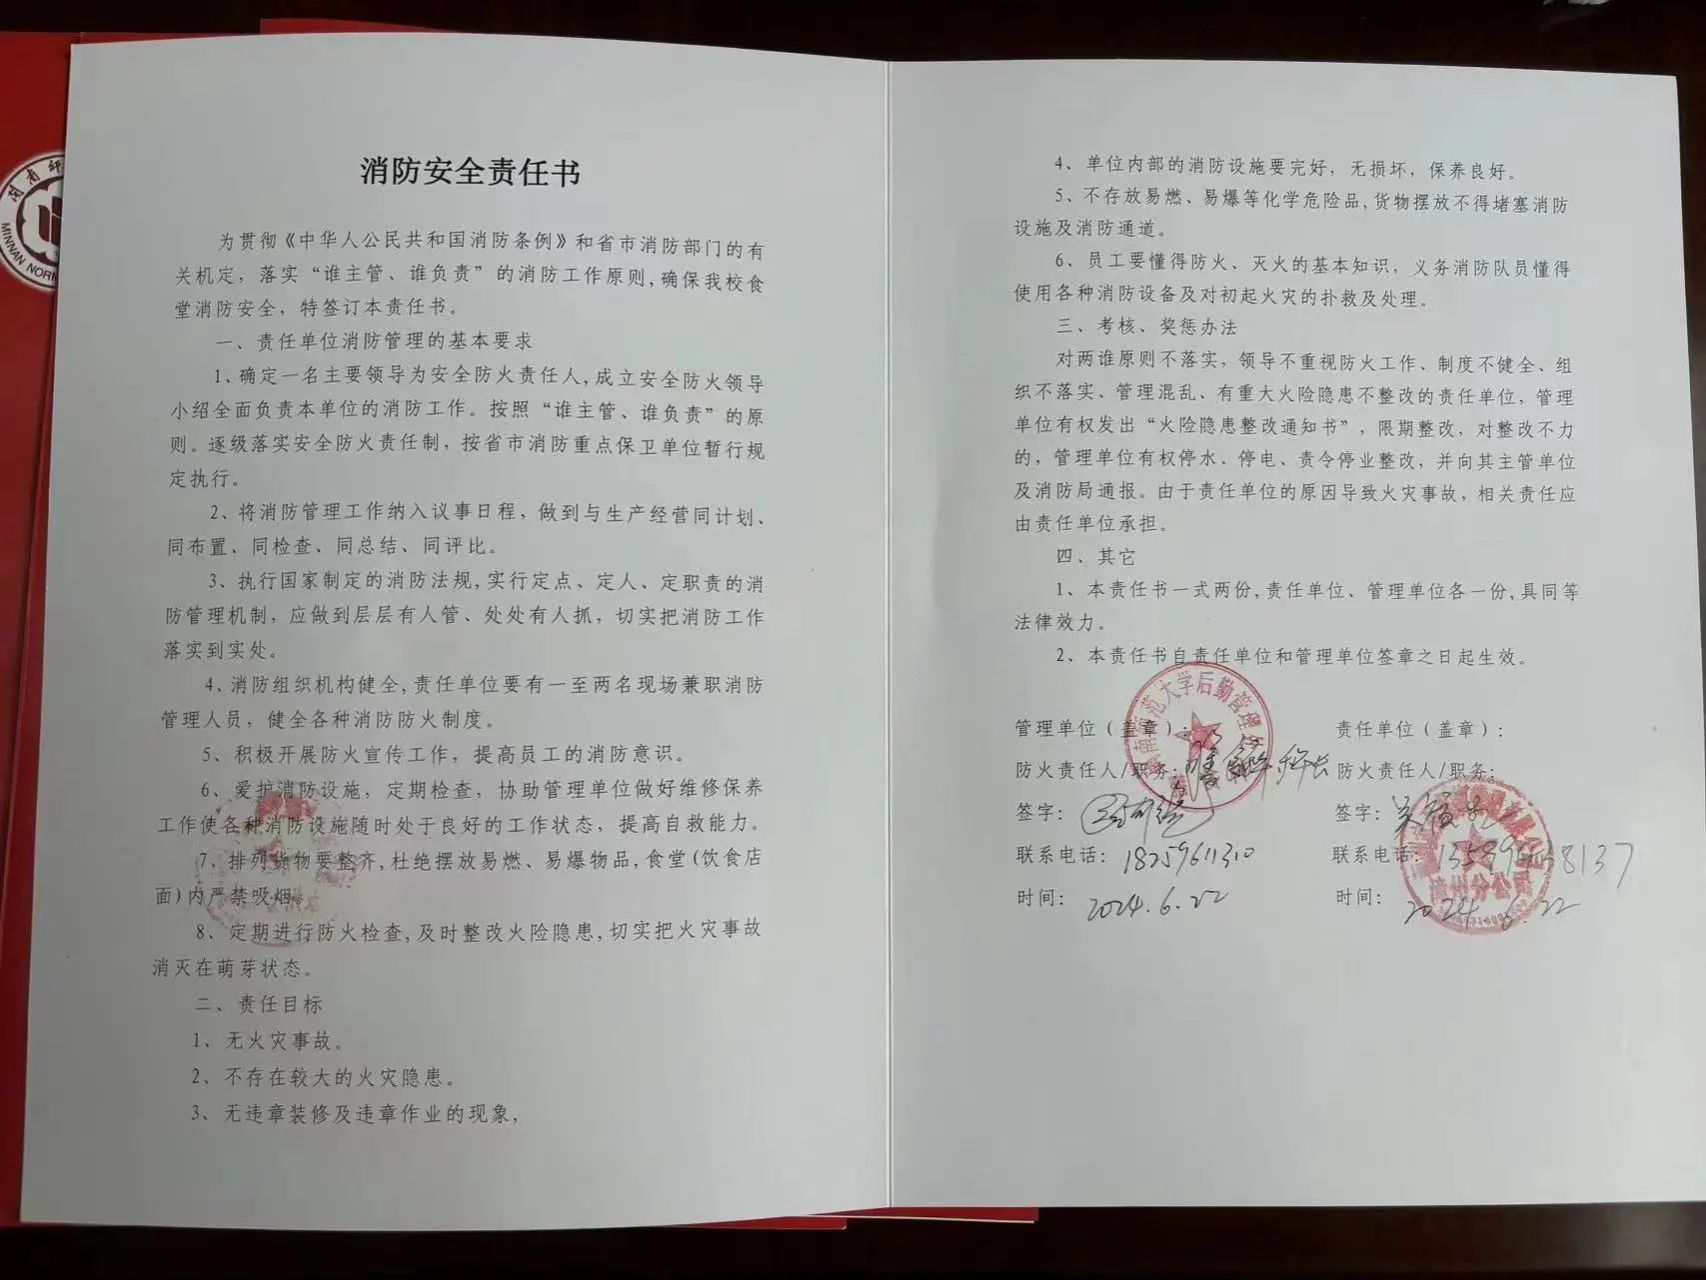 MINNAN NOR
消防安全责任书
为贯彻《中华人公民共和国消防条例》和省市消防部门的有
关机定，落实“谁主管、谁负责”的消防工作原则,确保我校食
堂消防安全，特签订本责任书。
一、责任单位消防管理的基本要求
1、确定一名主要领导为安全防火责任人,成立安全防火领导
小绍全面负责本单位的消防工作。按照“谁主管、谁负责”的原
则。逐级落实安全防火责任制，按省市消防重点保卫单位暂行规
定执行。
2、将消防管理工作纳入议事日程，做到与生产经营同计划、
同布置、同检查、同总结、同评比。
3、执行国家制定的消防法规,实行定点、定人、定职责的消
防管理机制，应做到层层有人管、处处有人抓，切实把消防工作
落实到实处。
4、消防组织机构健全,责任单位要有一至两名现场兼职消防
管理人员，健全各种消防防火制度。
5、积极开展防火宣传工作，提高员工的消防意识。
6、爱护消防设施，定期检查，协助管理单位做好维修保养
工作使各种消防设施随时处于良好的工作状态，提高自救能力。
7、排列货物要整齐,杜绝摆放易燃、易爆物品,食堂(饮食店
面)内严禁吸烟。
8、定期进行防火检查,及时整改火险隐患,切实把火灾事故
消灭在萌芽状态。
二、责任目标
1、无火灾事故。
2、不存在较大的火灾隐患。
3、无违章装修及违章作业的现象,
4、单位内部的消防设施要完好，无损坏，保养良好。
5、不存放易燃、易爆等化学危险品,货物摆放不得堵塞消防
设施及消防通道。
6、员工要懂得防火、灭火的基本知识，义务消防队员懂得
使用各种消防设备及对初起火灾的扑救及处理。
三、考核、奖惩办法
对两谁原则不落实，领导不重视防火工作、制度不健全、组
织不落实、管理混乱、有重大火险隐患不整改的责任单位，管理
单位有权发出“火险隐患整改通知书”，限期整改，对整改不力
的，管理单位有权停水、停电、责令停业整改，并向其主管单位
及消防局通报。由于责任单位的原因导致火灾事故，相关责任应
由责任单位承担。
四、其它
1、本责任书一式两份,责任单位、管理单位各一份,具同等
法律效力。
2、本责任书自责任单位和管理单位签章之日起生效。
范大学后勤管理
管理单位（盖章）:
防火责任人/职务:
签字:
联系电话: 18259611310
时间: 2024.6.22
责任单位（盖章）:
防火责任人/职务:
签字:
联系电话:
时间: 2024.6.22
漳州分公司